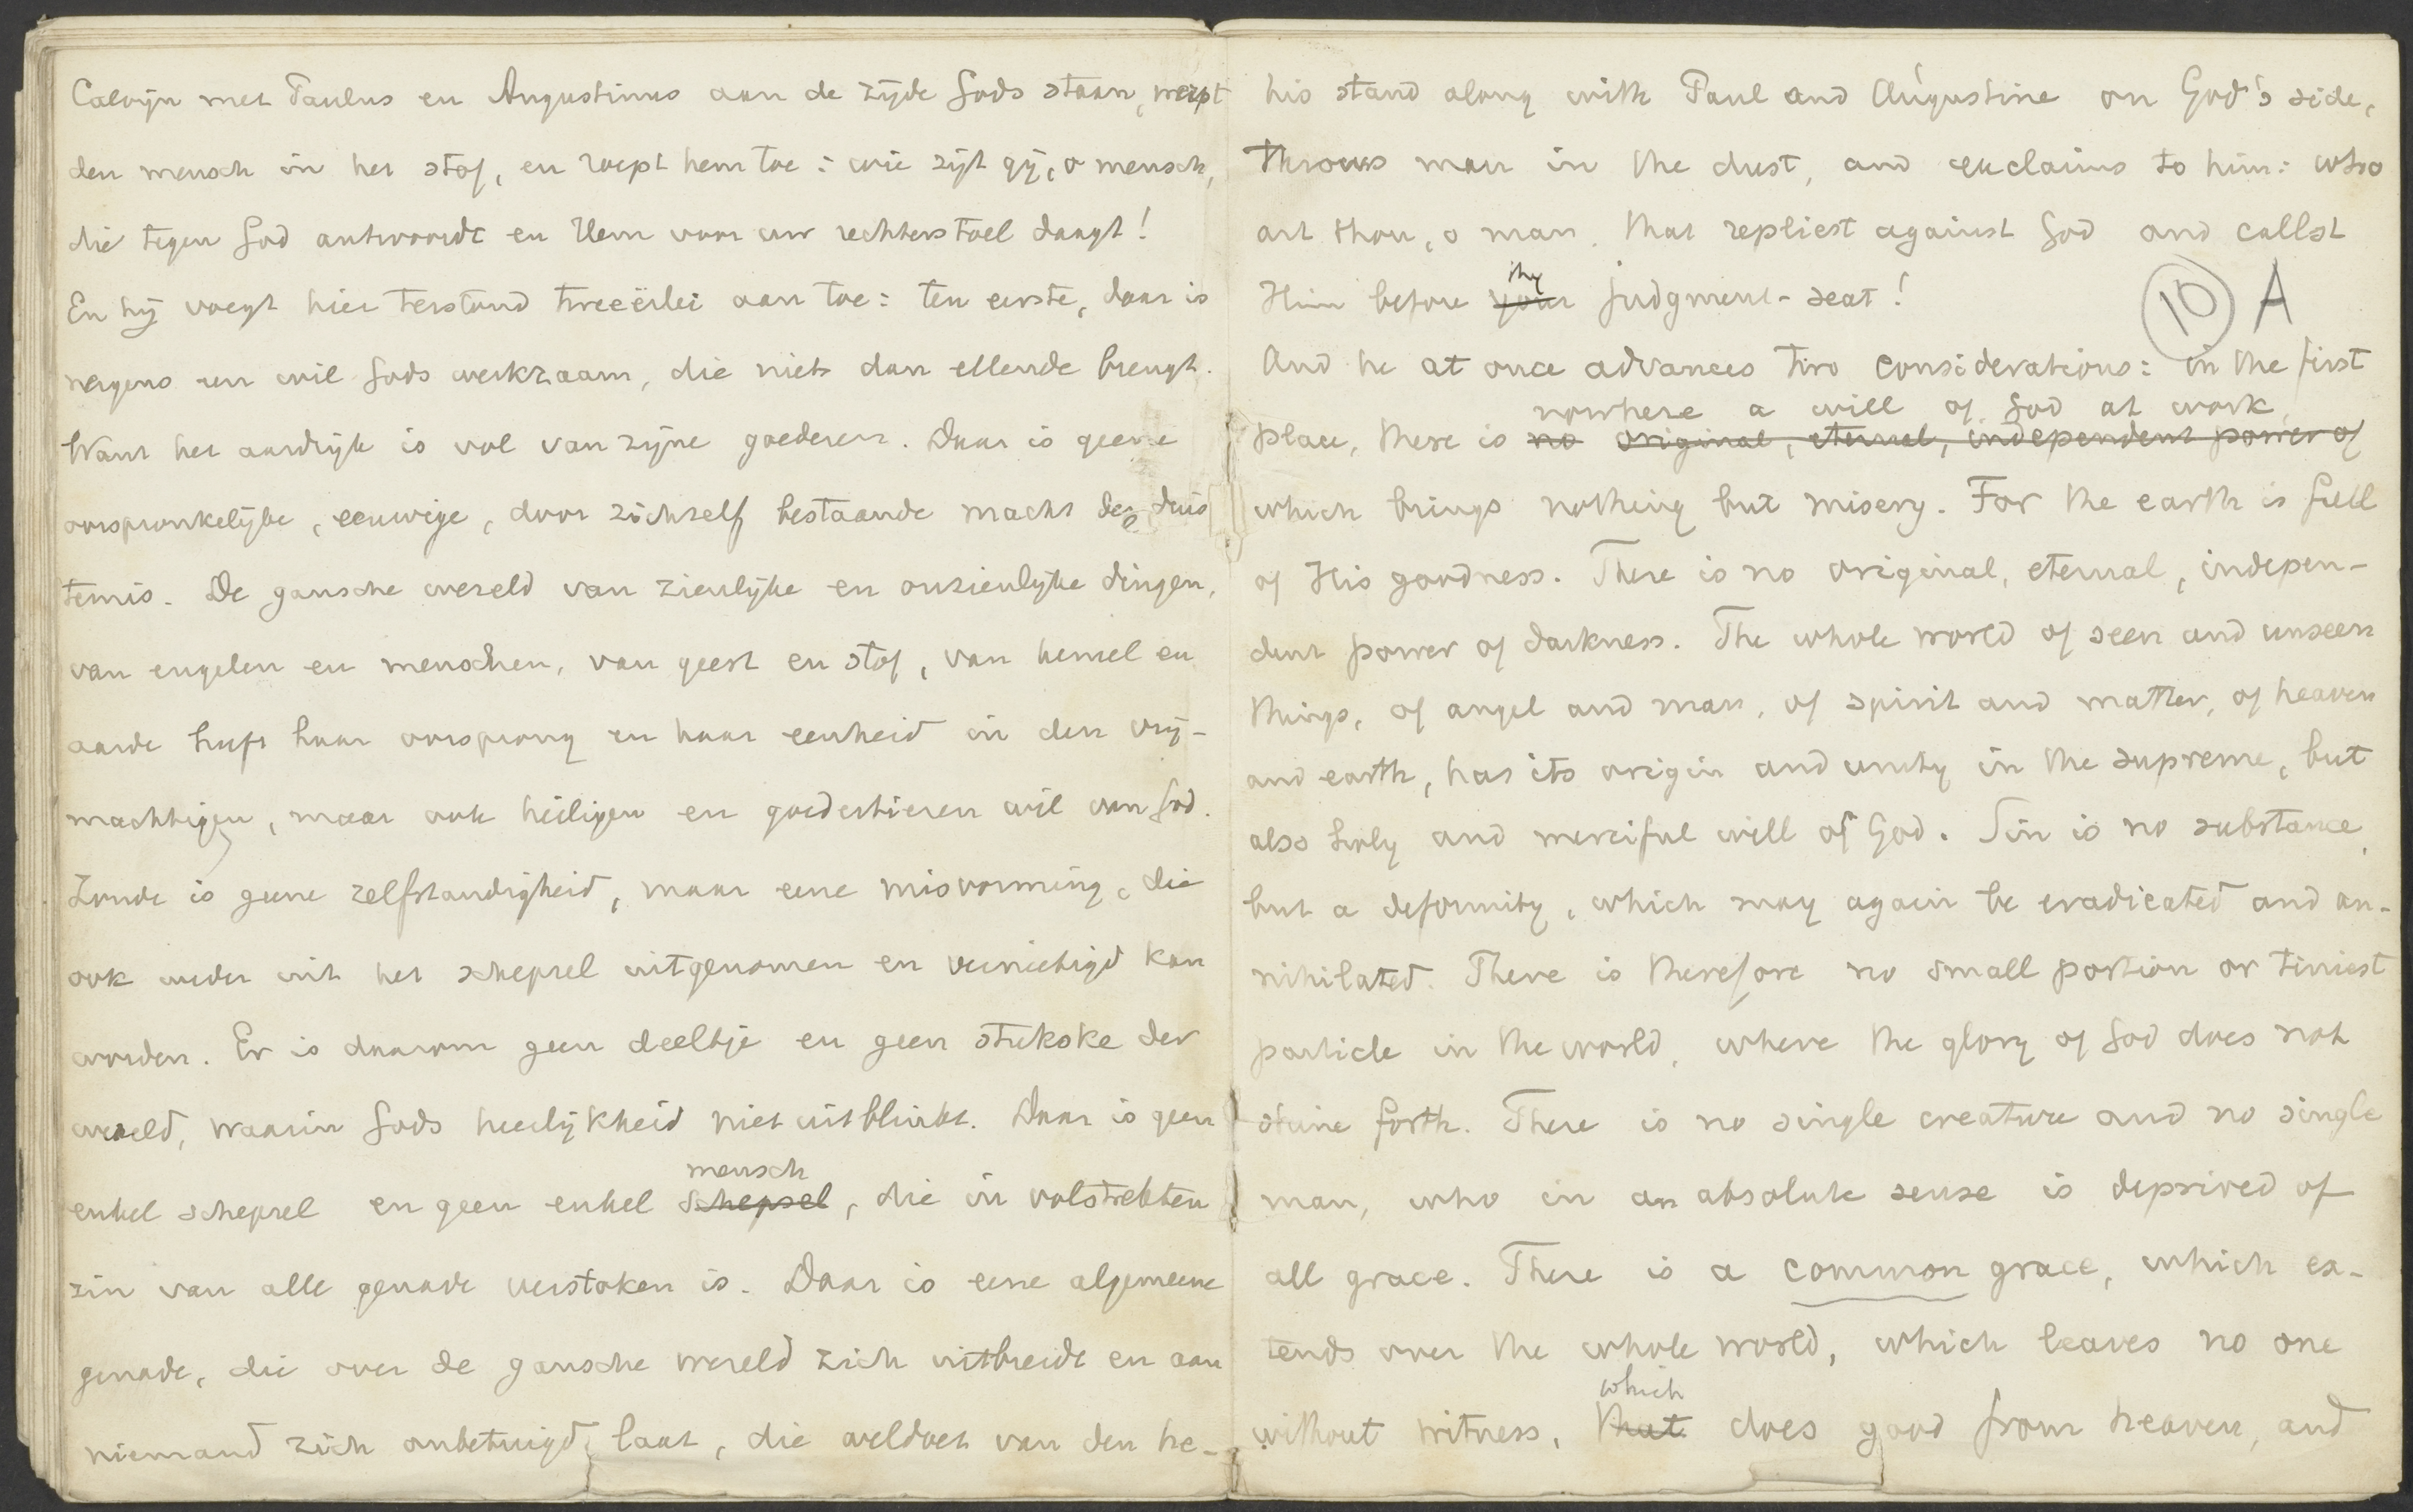 Calvijn met Paulus en Augustinus aan de zijde Gods staan, werpt
den mensch in het stof, en roept hem toe: wie zijt gij, o mensch,
die tegen God antwoordt en Hem voor uw rechterstoel daagt!
En hij voegt hier terstond tweeërlei aan toe: ten eerste, daar is
nergens een wil Gods werkzaam, die niets dan ellende brengt.
Want het aardrijk is vol van zijne goederen. Daar is geene
oorspronkelijke, eeuwige, door zichzelf bestaande macht der duis
ternis. De gansche wereld van zienlijke en onzienlijke dingen,
van engelen en menschen, van geest en stof, van hemel en
aarde heeft haar oorsprong en haar eenheid in den vrij-
machtigen, maar ook heiligen en goedertieren wil van God.
Zonde is geene zelfstandigheid, maar eene misvorming, die
ook weder uit het schepsel uitgenomen en vernietigd kan
worden. Er is daarom geen deeltje en geen stukske der
wereld, waarin Gods heerlijkheid niet uitblinkt. Daar is geen
mensch
enkel schepsel en geen enkel schepsel, die in volstrekten
zin van alle genade verstoken is. Daar is eene algemeene
genade, die over de gansche wereld zich uitbreidt en aan
niemand zich onbetuigd laat, die weldoet van den he-
his stand along with Paul and Augustine on God's side,
throws man in the dust, and exclaims to him: who
art thou, o man, that repliest against God and callst
thy
Him before your judgment-seat!
10 A
And he at once advances two considerations: in the first
nowhere a will of God at work,
place, there is no original, eternal, independent power of
which brings nothing but misery. For the earth is full
of His goodness. There is no original, eternal, indepen-
dent power of darkness. The whole world of seen and unseen
things, of angel and man, of spirit and matter, of heaven
and earth, has its origin and unity in the supreme, but
also holy and merciful will of God. Sin is no substance,
but a deformity, which may again be eradicated and an-
nihilated. There is therefore no small portion or tiniest
particle in the world, where the glory of God does not
shine forth. There is no single creature and no single
man, who in an absolute sense is deprived of
all grace. There is a common grace, which ex-
tends over the whole world, which leaves no one
which
without witness, that does good from heaven, and